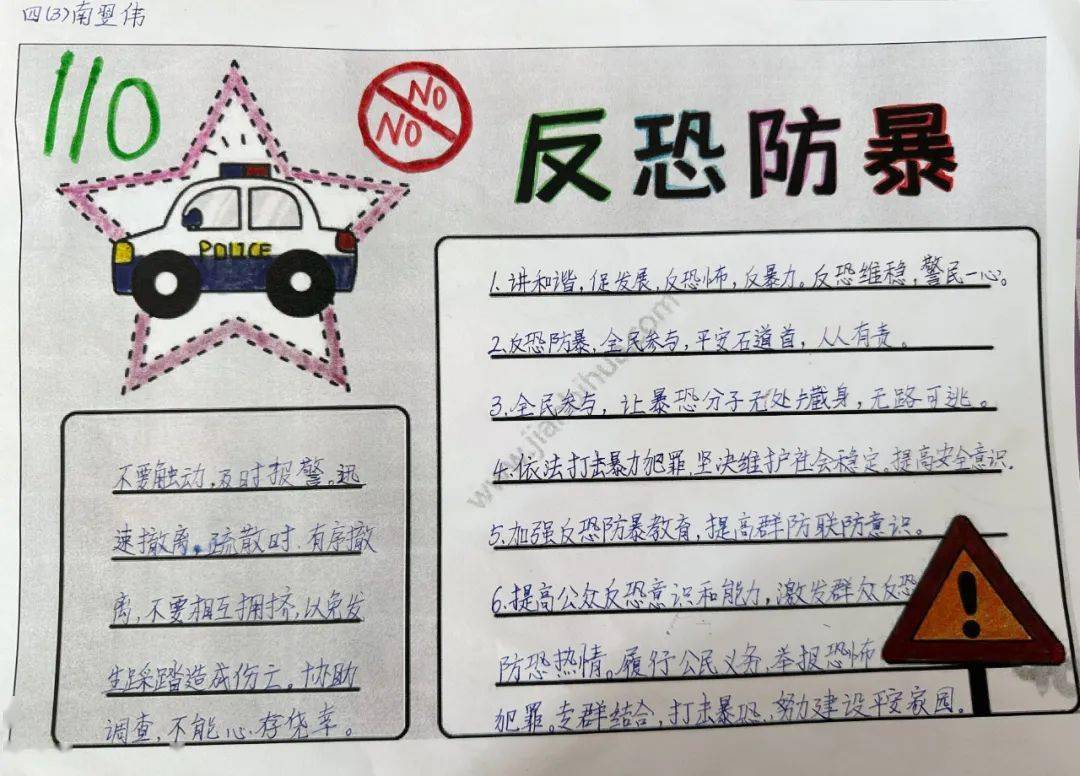 四(3)南翌伟
110
NO
NO
反恐防暴
POLICE
不要触动,及时报警。迅
速撤离。疏散时.有序撤
离,不要相互拥挤,以免发
生踩踏造成伤亡。协助
调查,不能心存侥幸。
1.讲和谐,促发展,反恐怖,反暴力。反恐维稳,警民一心。
2.反恐防暴,全民参与,平安石道首,人人有责。
3.全民参与,让暴恐分子无处藏身,无路可逃。
4.依法打击暴力犯罪,坚决维护社会稳定。提高安全意识.
5.加强反恐防暴教育,提高群防联防意识。
6.提高公众反恐意识和能力,激发群众反恐
防恐热情。履行公民义务,举报恐怖
犯罪。专群结合,打击暴恐.努力建设平安家园。